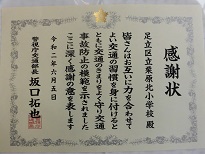 感謝状
足立区立栗原北小学校 殿
皆さんはお互いに力を合わせて
よい交通の習慣を身に付けると
ともに交通のきまりをよく守り交通
事故防止の模範を示されました
ここに深く感謝の意を表します
令和二年六月五日
警視庁交通部長 坂口拓也